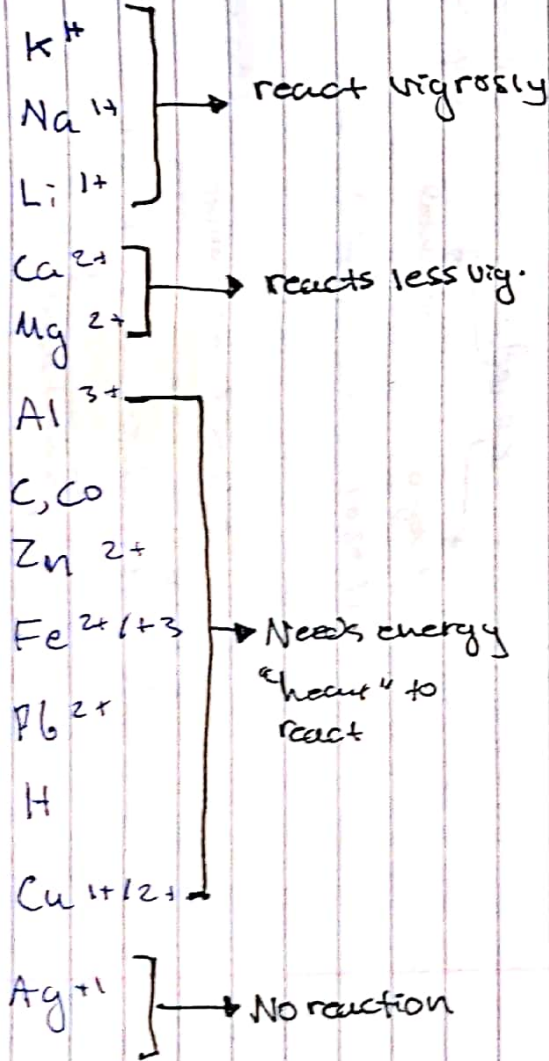 K 1+
Na 1+
react vigrosly
Li 1+
Ca 2+
reacts less vig.
Mg 2+
Al 3+
C, Co
Zn 2+
Fe 2+/+3
Needs energy
"heat" to
react
Pb 2+
H
Cu 1+/2+
Ag +1
No reaction